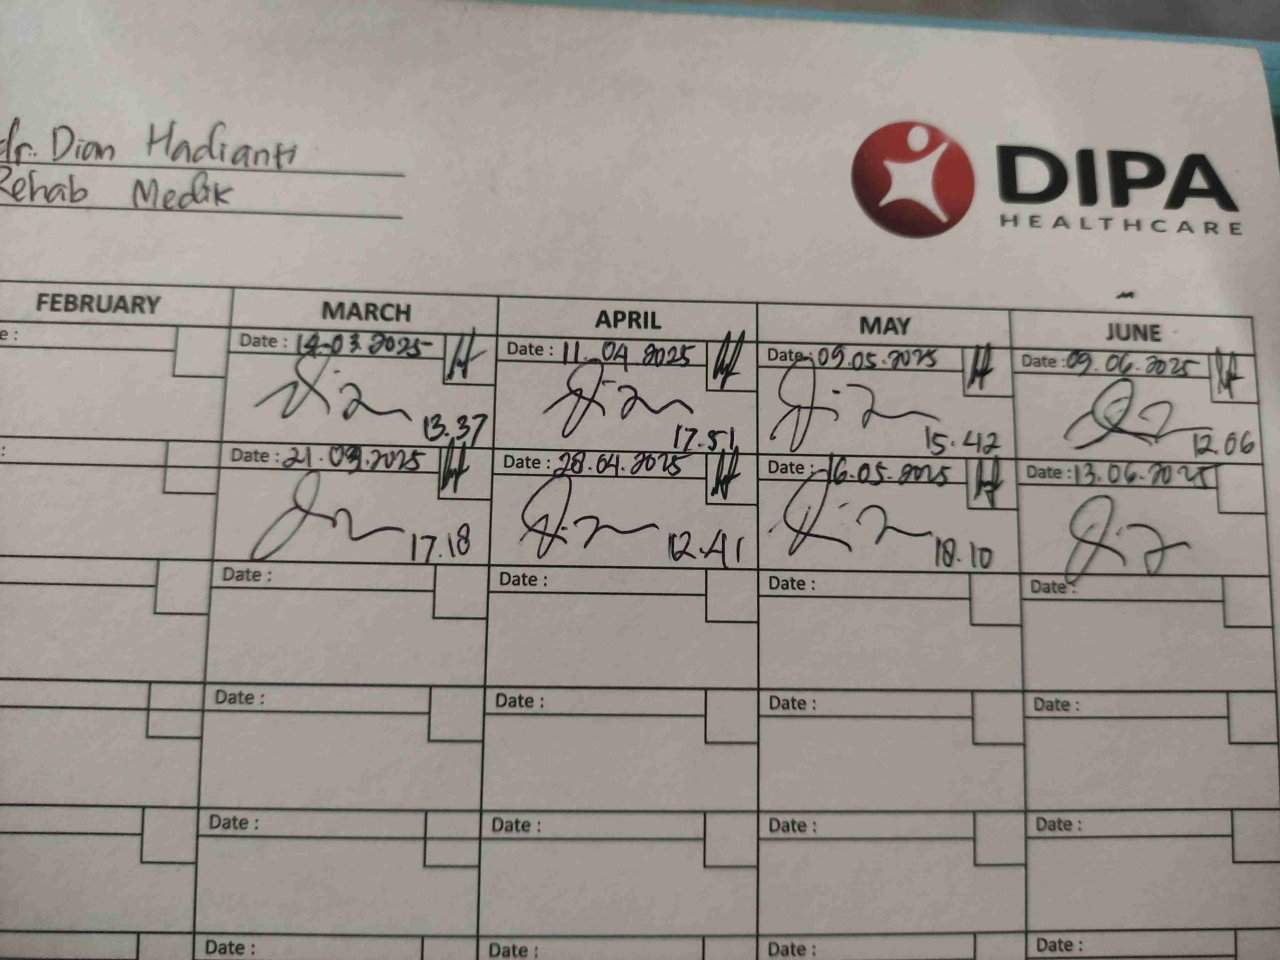 dr. Dian Hadianti
Rehab Medik
DIPA
HEALTHCARE
FEBRUARY MARCH APRIL MAY JUNE
e: Date: 14-03 2025 Date: 11.04 2025 Date: 09.05.2025 Date: 09.06.2025
13.37 17.51 15.42 12.06
: Date: 21.03.2025 Date: 28.04.2025 Date: 16.05.2025 Date: 13.06.2025
17.18 12.41 18.10
Date: Date: Date: Date:
Date: Date: Date: Date:
Date: Date: Date: Date:
Date: Date: Date: Date: